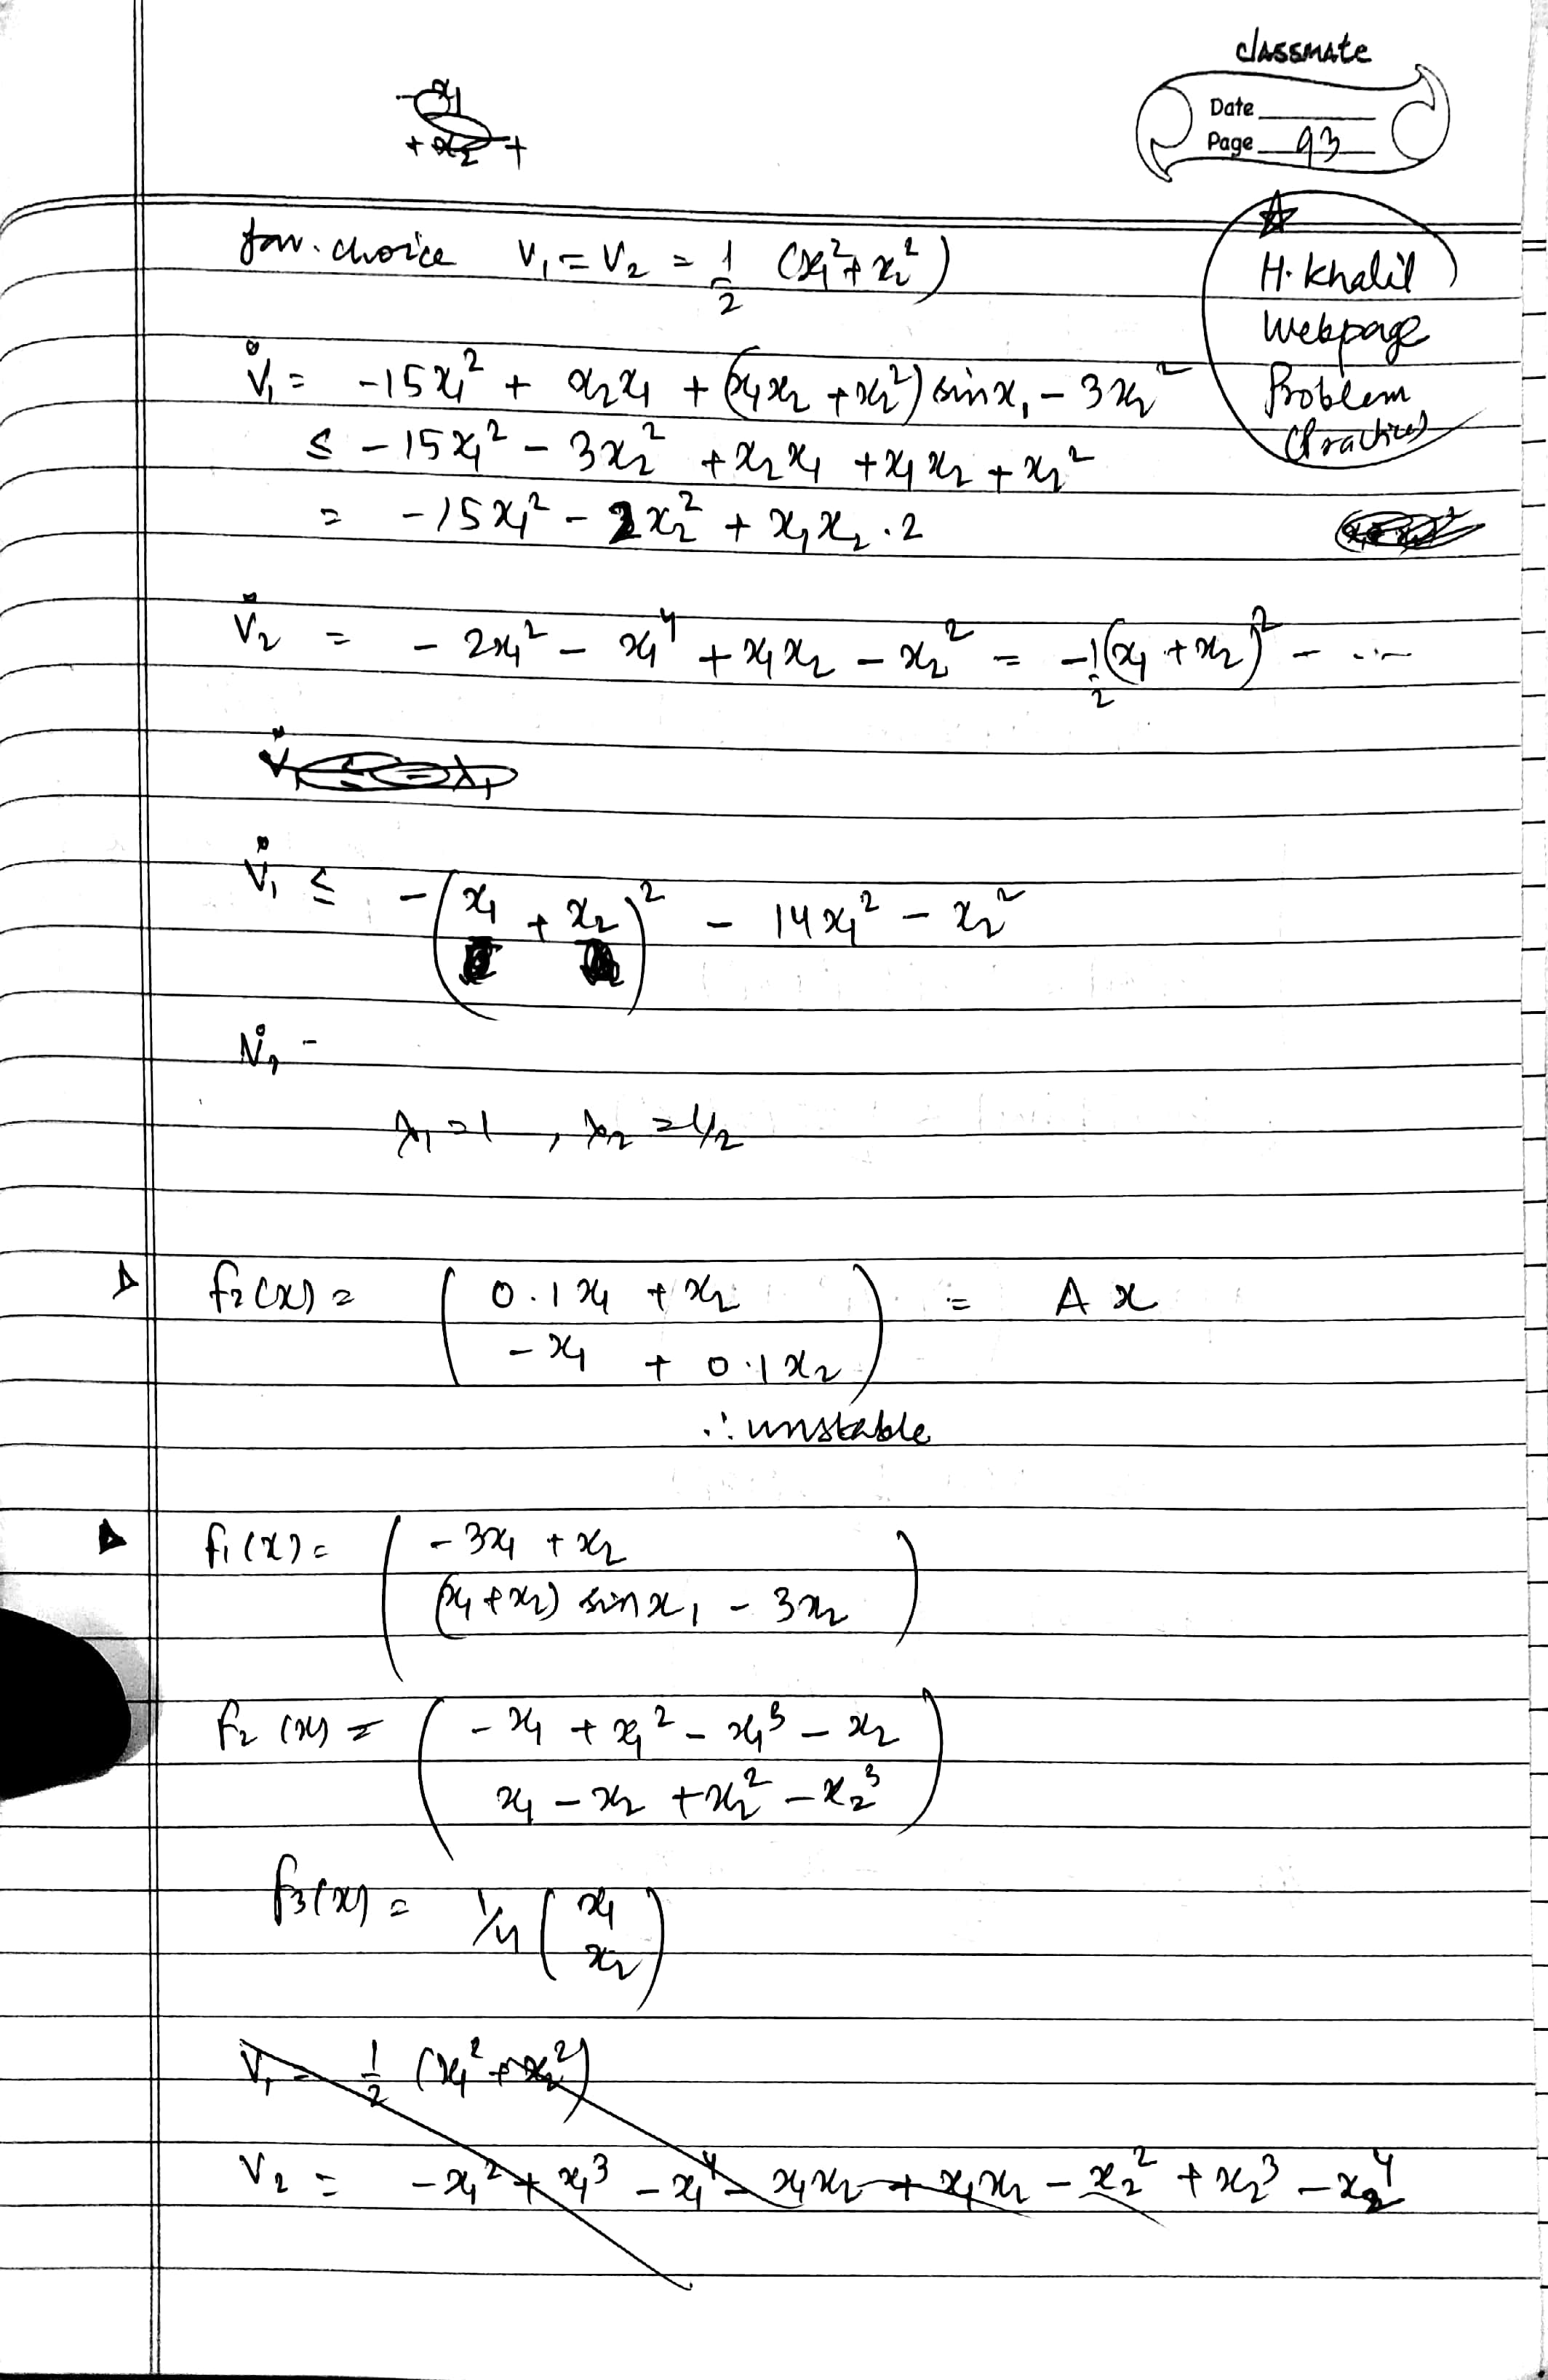 classmate
Date
Page 93
- x₁
+ x₂ +
for choice V₁ = V₂ = 1/2 (x₁² + x₂²)
☆
H. Khalil
Webpage
Problem
(Practice)
V̇₁ = -15x₁² + x₂x₁ + (x₁x₂ + x₂²) sinx₁ - 3x₂²
≤ -15x₁² - 3x₂² + x₂x₁ + x₁x₂ + x₂²
= -15x₁² - 2x₂² + x₁x₂ . 2
V̇₂ = - 2x₁² - x₁⁴ + x₁x₂ - x₂² = -1/2 (x₁ + x₂)² - ...
V̇₁ ≤ -(x₁ + x₂)² - 14x₁² - x₂²
V̇₂ =
λ₁ = 1, λ₂ = 1/2
▷ f₂(x) = ( 0.1x₁ + x₂
-x₁ + 0.1x₂ ) = A x
∴ unstable
▷ f₁(x) = ( -3x₁ + x₂
(x₁ + x₂) sinx₁ - 3x₂ )
f₂(x) = ( -x₁ + x₁² - x₁³ - x₂
x₁ - x₂ + x₂² - x₂³ )
f₃(x) = 1/4 ( x₁
x₂ )
V₁ = 1/2 (x₁² + x₂²)
V₂ = -x₁² + x₁³ - x₁⁴ - x₁x₂ + x₁x₂ - x₂² + x₂³ - x₂⁴